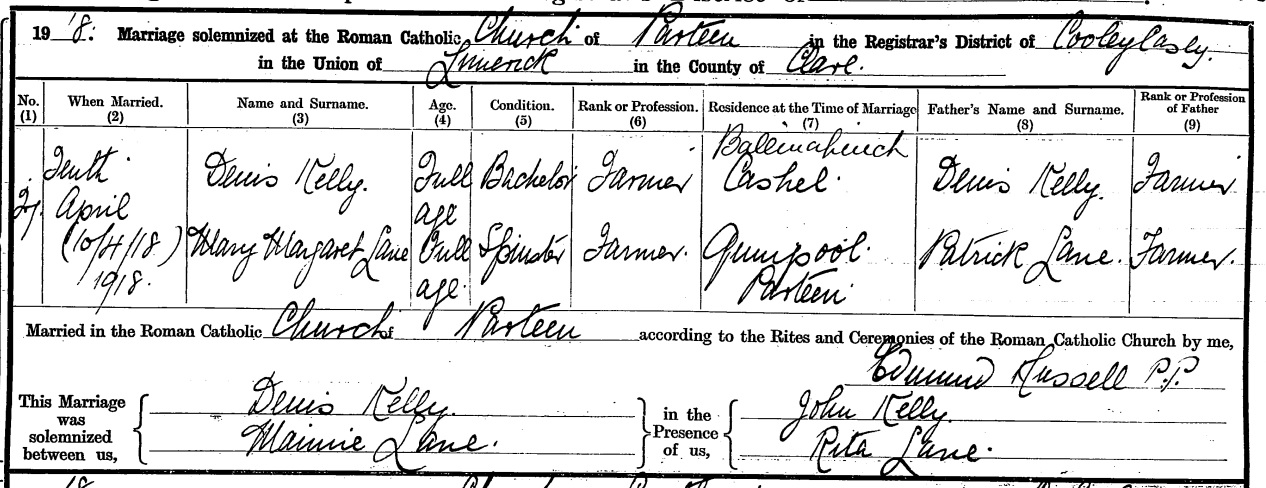 1918. Marriage solemnized at the Roman Catholic Church of Parteen in the Registrar's District of Cooleycasey.
in the Union of Limerick in the County of Clare.
No. (1) When Married. (2) Name and Surname. (3) Age. (4) Condition. (5) Rank or Profession. (6) Residence at the Time of Marriage (7) Father's Name and Surname. (8) Rank or Profession of Father (9)
Tenth April (10/4/18) 1918. Denis Kelly. Full age Bachelor Farmer Ballinahinch Cashel. Denis Kelly. Farmer
Mary Margaret Lane Full age. Spinster Farmer. Quinpool Parteen. Patrick Lane. Farmer.
Married in the Roman Catholic Church of Parteen according to the Rites and Ceremonies of the Roman Catholic Church by me,
Edmund Russell P.P.
This Marriage was solemnized between us, Denis Kelly. in the Presence of us, John Kelly.
Mainie Lane. Rita Lane.